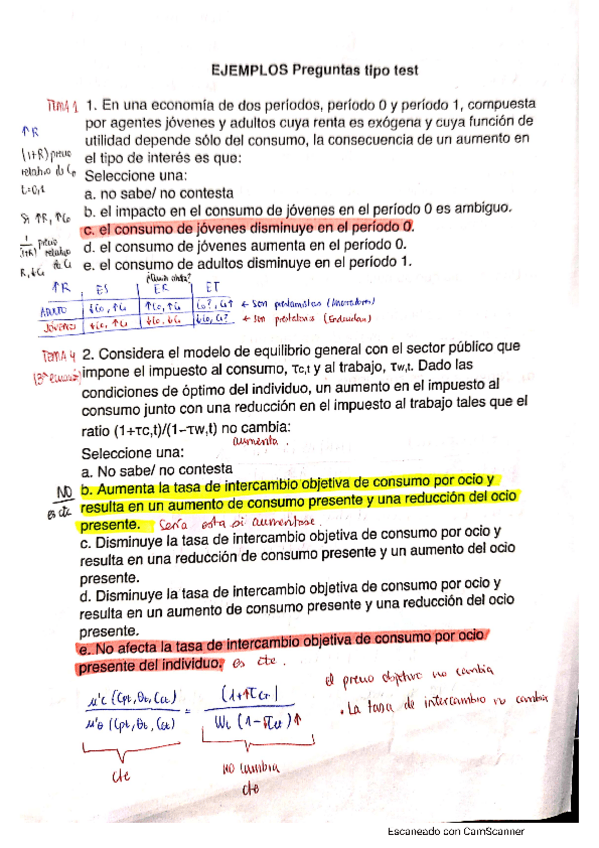 EJEMPLOS Preguntas tipo test
TEMA 1 1. En una economía de dos períodos, período 0 y período 1, compuesta
por agentes jóvenes y adultos cuya renta es exógena y cuya función de
utilidad depende sólo del consumo, la consecuencia de un aumento en
el tipo de interés es que:
Seleccione una:
a. no sabe/ no contesta
b. el impacto en el consumo de jóvenes en el período 0 es ambiguo.
c. el consumo de jóvenes disminuye en el período 0.
d. el consumo de jóvenes aumenta en el período 0.
e. el consumo de adultos disminuye en el período 1.
↑R
(1+R) precio
relativo de C0
Si ↑R, ↑C0
precio
relativo
de C1
↑R, ES ER ET
ADULTO ↓C0, ↑C1 ↑C0, ↑C1 C0?, C1↑ ← son prestamistas (Ahorradores)
Jóvenes ↓C0, ↑C1 ↓C0, ↓C1 ↓C0, C1? ← son prestatarios (Endeudan)
TEMA 4 2. Considera el modelo de equilibrio general con el sector público que
impone el impuesto al consumo, τc,t y al trabajo, τw,t. Dado las
condiciones de óptimo del individuo, un aumento en el impuesto al
consumo junto con una reducción en el impuesto al trabajo tales que el
ratio (1+τc,t)/(1−τw,t) no cambia:
aumenta.
Seleccione una:
a. No sabe/ no contesta
NO
es cte
b. Aumenta la tasa de intercambio objetiva de consumo por ocio y
resulta en un aumento de consumo presente y una reducción del ocio
presente. Sería esta si aumentase.
c. Disminuye la tasa de intercambio objetiva de consumo por ocio y
resulta en una reducción de consumo presente y un aumento del ocio
presente.
d. Disminuye la tasa de intercambio objetiva de consumo por ocio y
resulta en un aumento de consumo presente y una reducción del ocio
presente.
e. No afecta la tasa de intercambio objetiva de consumo por ocio
presente del individuo. es cte.
el precio objetivo no cambia
. La tasa de intercambio no cambia
cte
NO cambia
cte
Escaneado con CamScanner